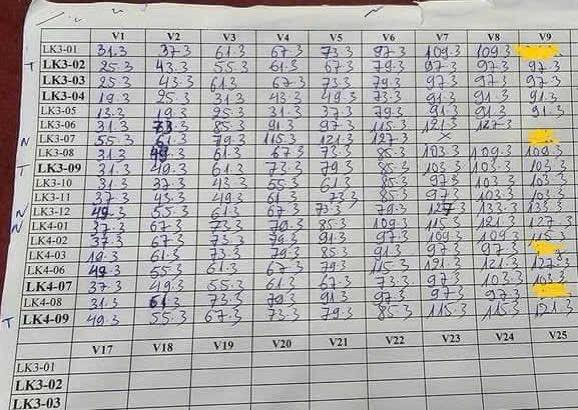 V1 V2 V3 V4 V5 V6 V7 V8 V9
LK3-01 31.3 37.3 61.3 67.3 73.3 97.3 109.3 109.3
T LK3-02 25.3 43.3 55.3 61.3 67.3 79.3 97.3 97.3 97.3
LK3-03 25.3 43.3 61.3 67.3 73.3 79.3 97.3 97.3 97.3
LK3-04 19.3 25.3 31.3 43.3 49.3 73.3 91.3 91.3 91.3
LK3-05 13.3 19.3 25.3 31.3 37.3 79.3 91.3 91.3 91.3
LK3-06 31.3 73.3 85.3 91.3 97.3 115.3 121.3 127.3
N LK3-07 55.3 61.3 79.3 115.3 121.3 127.3 X
LK3-08 31.3 49.3 61.3 67.3 73.3 85.3 103.3 109.3 109.3
T LK3-09 31.3 49.3 61.3 73.3 79.3 85.3 103.3 103.3 103.3
LK3-10 31.3 37.3 43.3 55.3 61.3 85.3 97.3 103.3 103.3
LK3-11 37.3 43.3 49.3 61.3 73.3 85.3 97.3 103.3 103.3
N LK3-12 49.3 55.3 61.3 67.3 73.3 79.3 127.3 133.3 133.3
N LK4-01 37.3 67.3 73.3 79.3 85.3 109.3 115.3 121.3 127.3
LK4-02 37.3 67.3 73.3 79.3 91.3 97.3 109.3 109.3 115.3
LK4-03 19.3 61.3 73.3 79.3 85.3 91.3 97.3 97.3
LK4-06 49.3 55.3 61.3 67.3 79.3 115.3 121.3 121.3 127.3
LK4-07 37.3 49.3 55.3 61.3 67.3 73.3 97.3 103.3 103.3
LK4-08 31.3 61.3 73.3 79.3 91.3 97.3 97.3 97.3
T LK4-09 49.3 55.3 67.3 73.3 79.3 85.3 115.3 115.3 121.3
V17 V18 V19 V20 V21 V22 V23 V24 V25
LK3-01
LK3-02
LK3-03